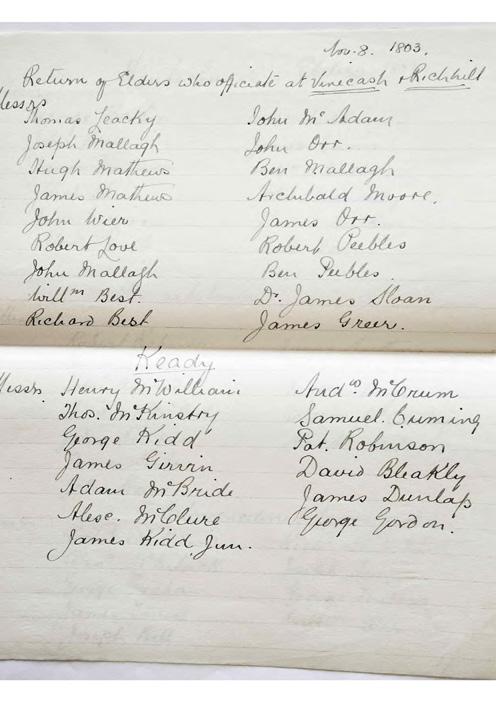 Nov. 8. 1803.
Return of Elders who officiate at Vinecash & Richhill
Messrs
Thomas Leacky John McAdam
Joseph Mallagh John Orr.
Hugh Mathews Ben Mallagh
James Mathews Archibald Moore.
John Wier James Orr.
Robert Love Robert Peebles
John Mallagh Ben Peebles.
Willm Best. Dr. James Sloan
Richard Best James Greer.
Keady
Messrs. Henry McWilliam Andw McCrum
Thos. McKinstry Samuel Cuming
George Kidd Pat. Robinson
James Girvin David Bleakly
Adam McBride James Dunlap
Alexr. McClure George Gordon.
James Kidd Jun.